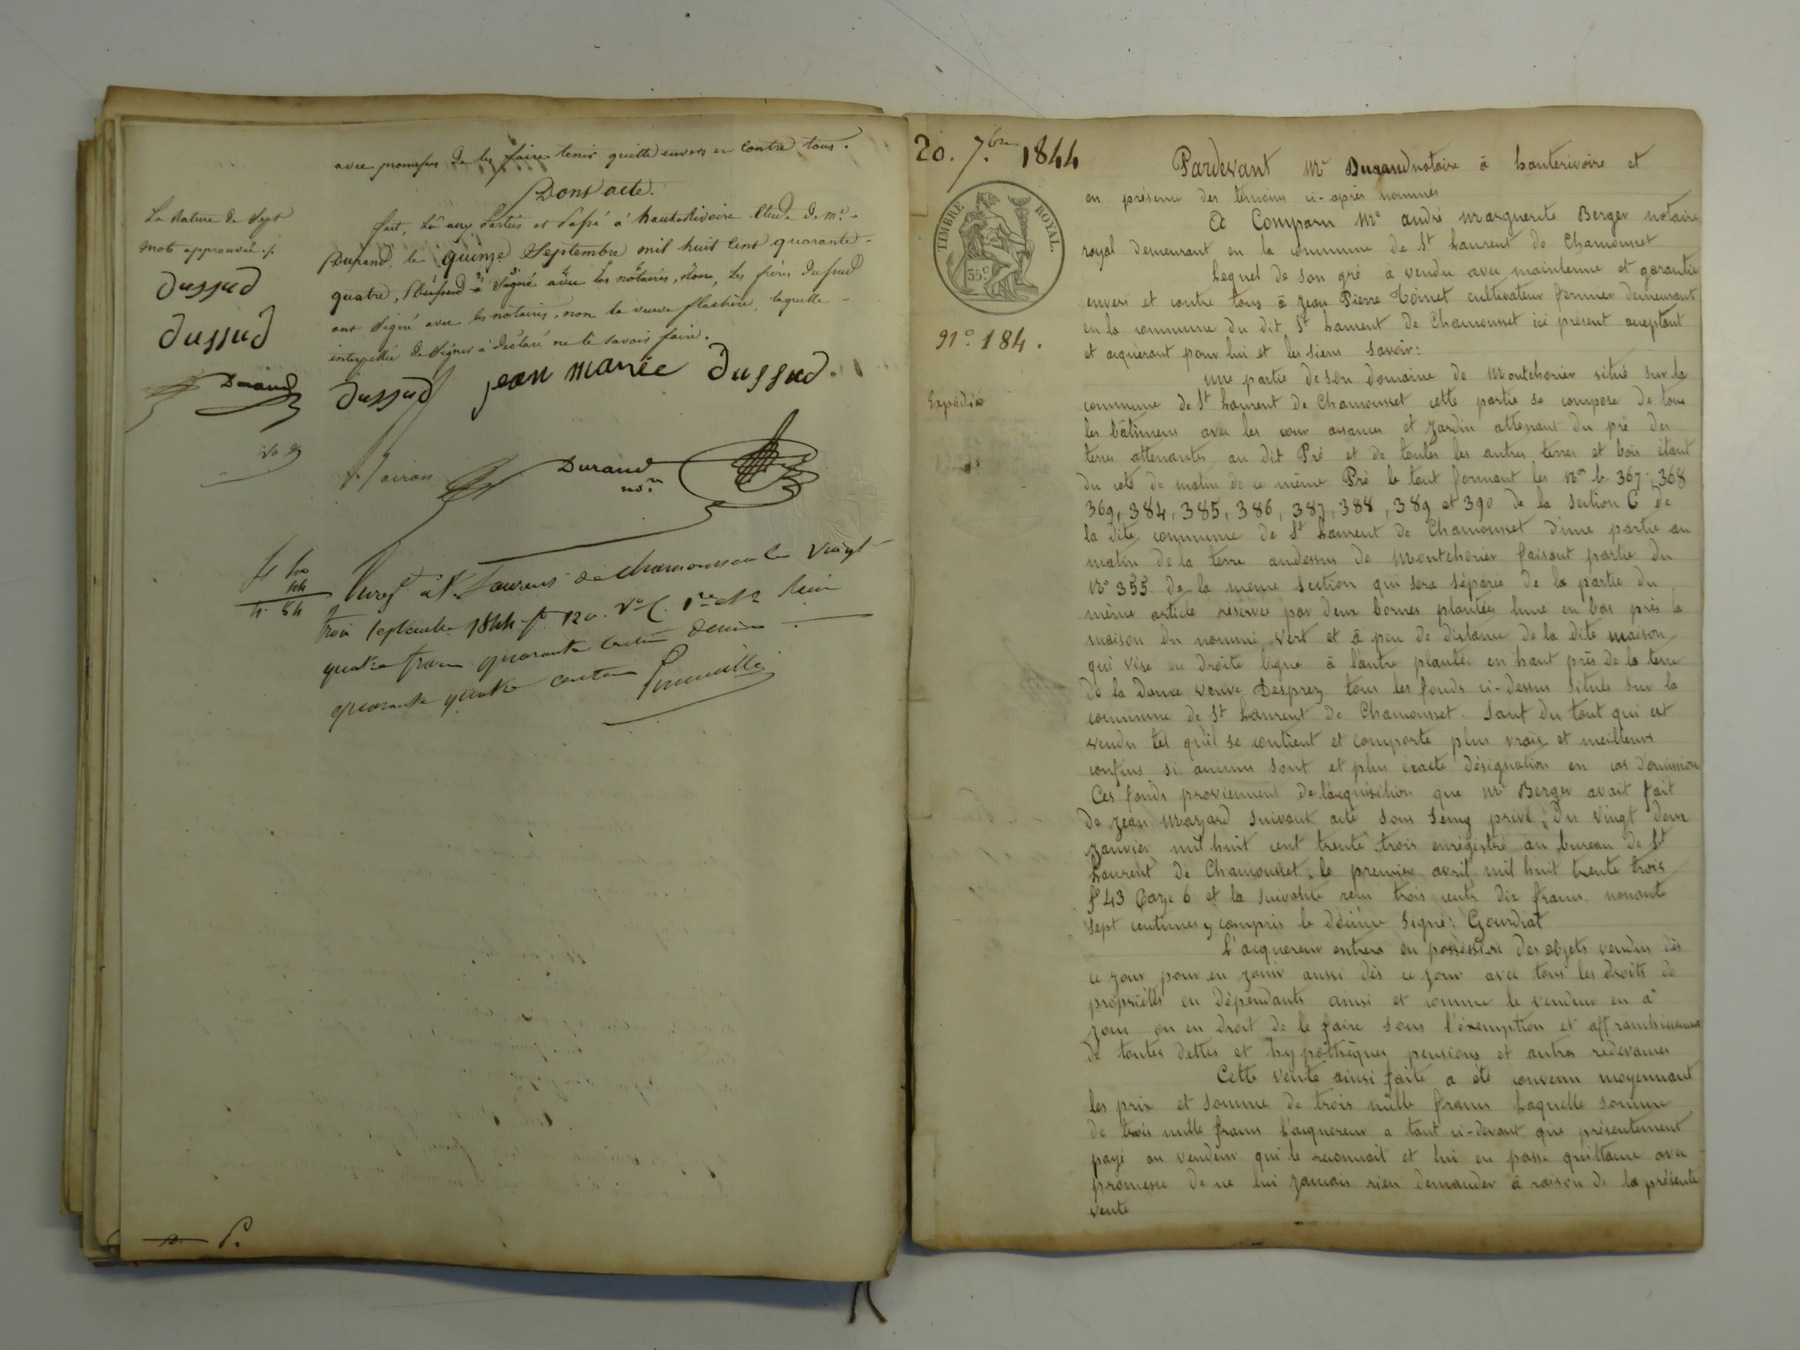 avec promesses de les faire tenir quitte envers et contre tous.
Dont acte.
La rature de sept
mots approuvée
Dussud
Dussud
Durand
fait, lu aux parties et passé à hauterivoire Etude de me
Durand, le quinze Septembre mil huit cent quarante
quatre, les frères Dussud
ont signé avec les notaires, non la veuve flachère, laquelle
interpellée de signer a déclaré ne le savoir faire.
Dussud jean marie Dussud.
Durand
nore
4 40
44
4. 84
Enregé à St Laurent de chamousset le vingt
trois septembre 1844 fo 120. Vo C. 1re et 2 reçu
quatre francs quarante centimes decime
quarante quatre centimes
20. 7bre 1844
TIMBRE ROYAL.
35 c
No. 184.
Expédié
Pardevant Me Durand notaire à hauterivoire et
en présence des témoins ci-après nommés
A Comparu Me andré marguerite Berger notaire
royal demeurant en la commune de St Laurent de Chamousset
Lequel de son gré a vendu avec maintenue et garantie
envers et contre tous à Jean Pierre Toinet cultivateur fermier demeurant
en la commune du dit St Laurent de Chamousset ici présent acceptant
et acquérant pour lui et les siens savoir:
une partie de son domaine de Montchorier situé sur la
commune de St Laurent de Chamousset cette partie se compose de tous
les bâtimens avec les cour aisances et jardin attenant du pré des
terres attenantes au dit Pré et de toutes les autres terres et bois étant
du coté de matin de ce même Pré le tout formant les Nos 367, 368
369, 384, 385, 386, 387, 388, 389 et 390 de la section C de
la dite commune de St Laurent de Chamousset d'une partie au
matin de la terre audessus de Montchorier faisant partie du
No 355 de la même section qui sera séparée de la partie du
même article réservée par deux bornes plantées l'une en bas près la
maison du nommé Vert et à peu de distance de la dite maison
qui vise en droite ligne à l'autre plantée en haut près de la terre
de la Dame veuve Desprez tous les fonds ci-dessus situés sur la
commune de St Laurent de Chamousset. Sauf du tout qui est
vendu tel qu'il se contient et comporte plus vrais et meilleurs
confins si aucuns sont et plus exacte désignation en cas d'omission
Ces fonds proviennent de l'acquisition que Me Berger avait fait
de Jean Mazard suivant acte sous seing privé du vingt deux
Janvier mil huit cent trente trois enrégistré au bureau de St
Laurent de Chamousset le premier avril mil huit trente trois
fo 43 Caze 6 et la suivante reçu trois cents dix francs nonante
sept centimes y compris le décime Signé: Gourdiat
L'acquereur entrera en possession des objets vendus dès
ce jour pour en jouir aussi dès ce jour avec tous les droits de
propriétés en dépendants ainsi et comme le vendeur en a
joui ou en droit de le faire sous l'exemption et affranchissement
de toutes dettes et hypothèques pensions et autres redevances
Cette vente ainsi faite a été convenu moyennant
les prix et somme de trois mille francs Laquelle somme
de trois mille francs l'acquereur a tant ci-devant que présentement
payé au vendeur qui le reconnait et lui en passe quittance avec
promesse de ne lui jamais rien demander à raison de la présente
vente